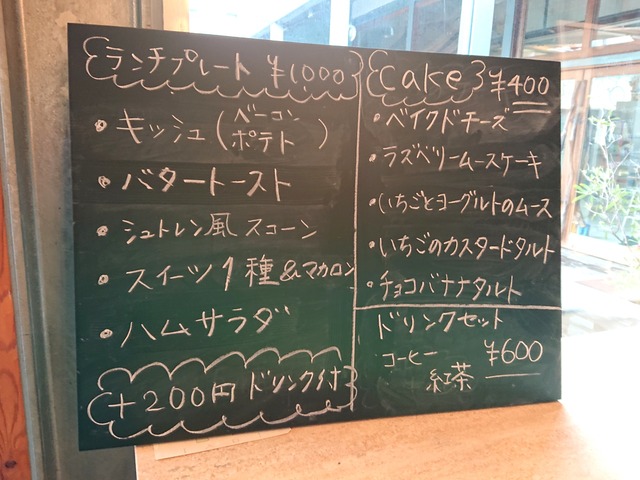 ランチプレート ¥1,000
・キッシュ(ベーコン
ポテト)
・バタートースト
・シュトレン風スコーン
・スイーツ1種&マカロン
・ハムサラダ
+200円ドリンク付
Cake ¥400
・ベイクドチーズ
・ラズベリームースケーキ
・いちごとヨーグルトのムース
・いちごのカスタードタルト
・チョコバナナタルト
ドリンクセット
コーヒー ¥600
紅茶